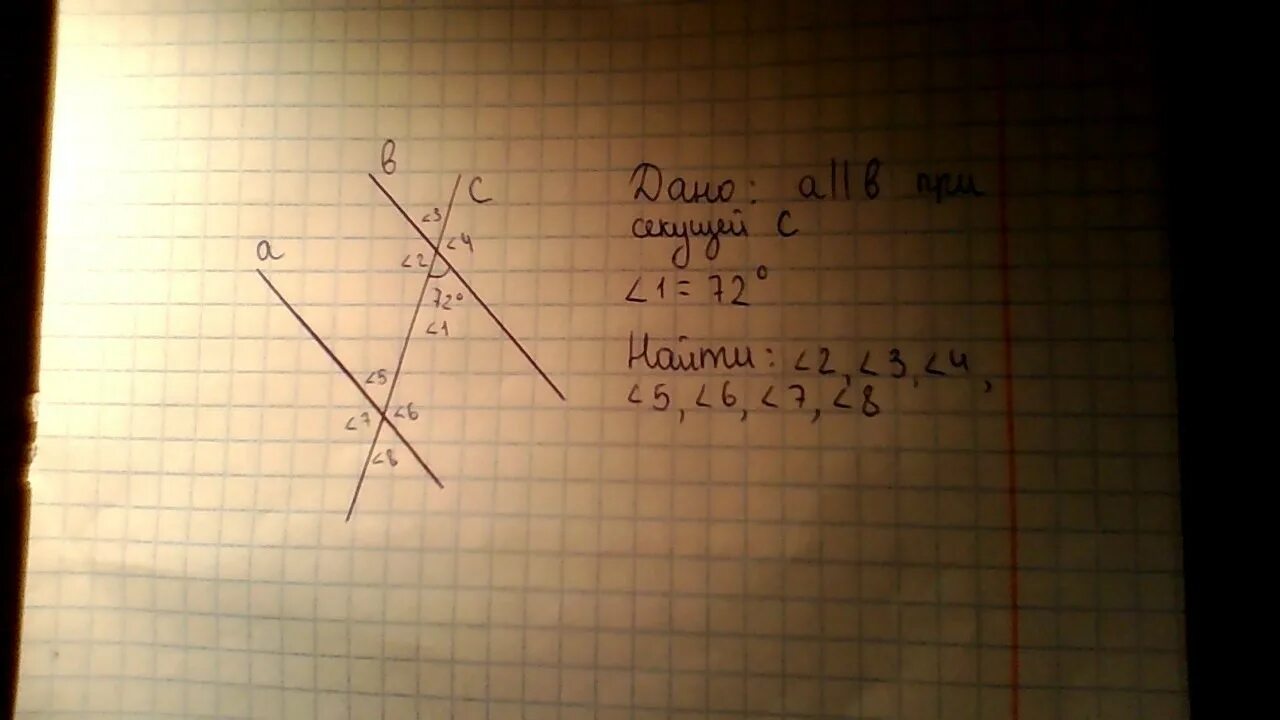 в
с
∠3
∠4
а
∠2
72°
∠1
∠5
∠7
∠6
∠8
Дано: а||в при
секущей с
∠1 = 72°
Найти: ∠2, ∠3, ∠4,
∠5, ∠6, ∠7, ∠8